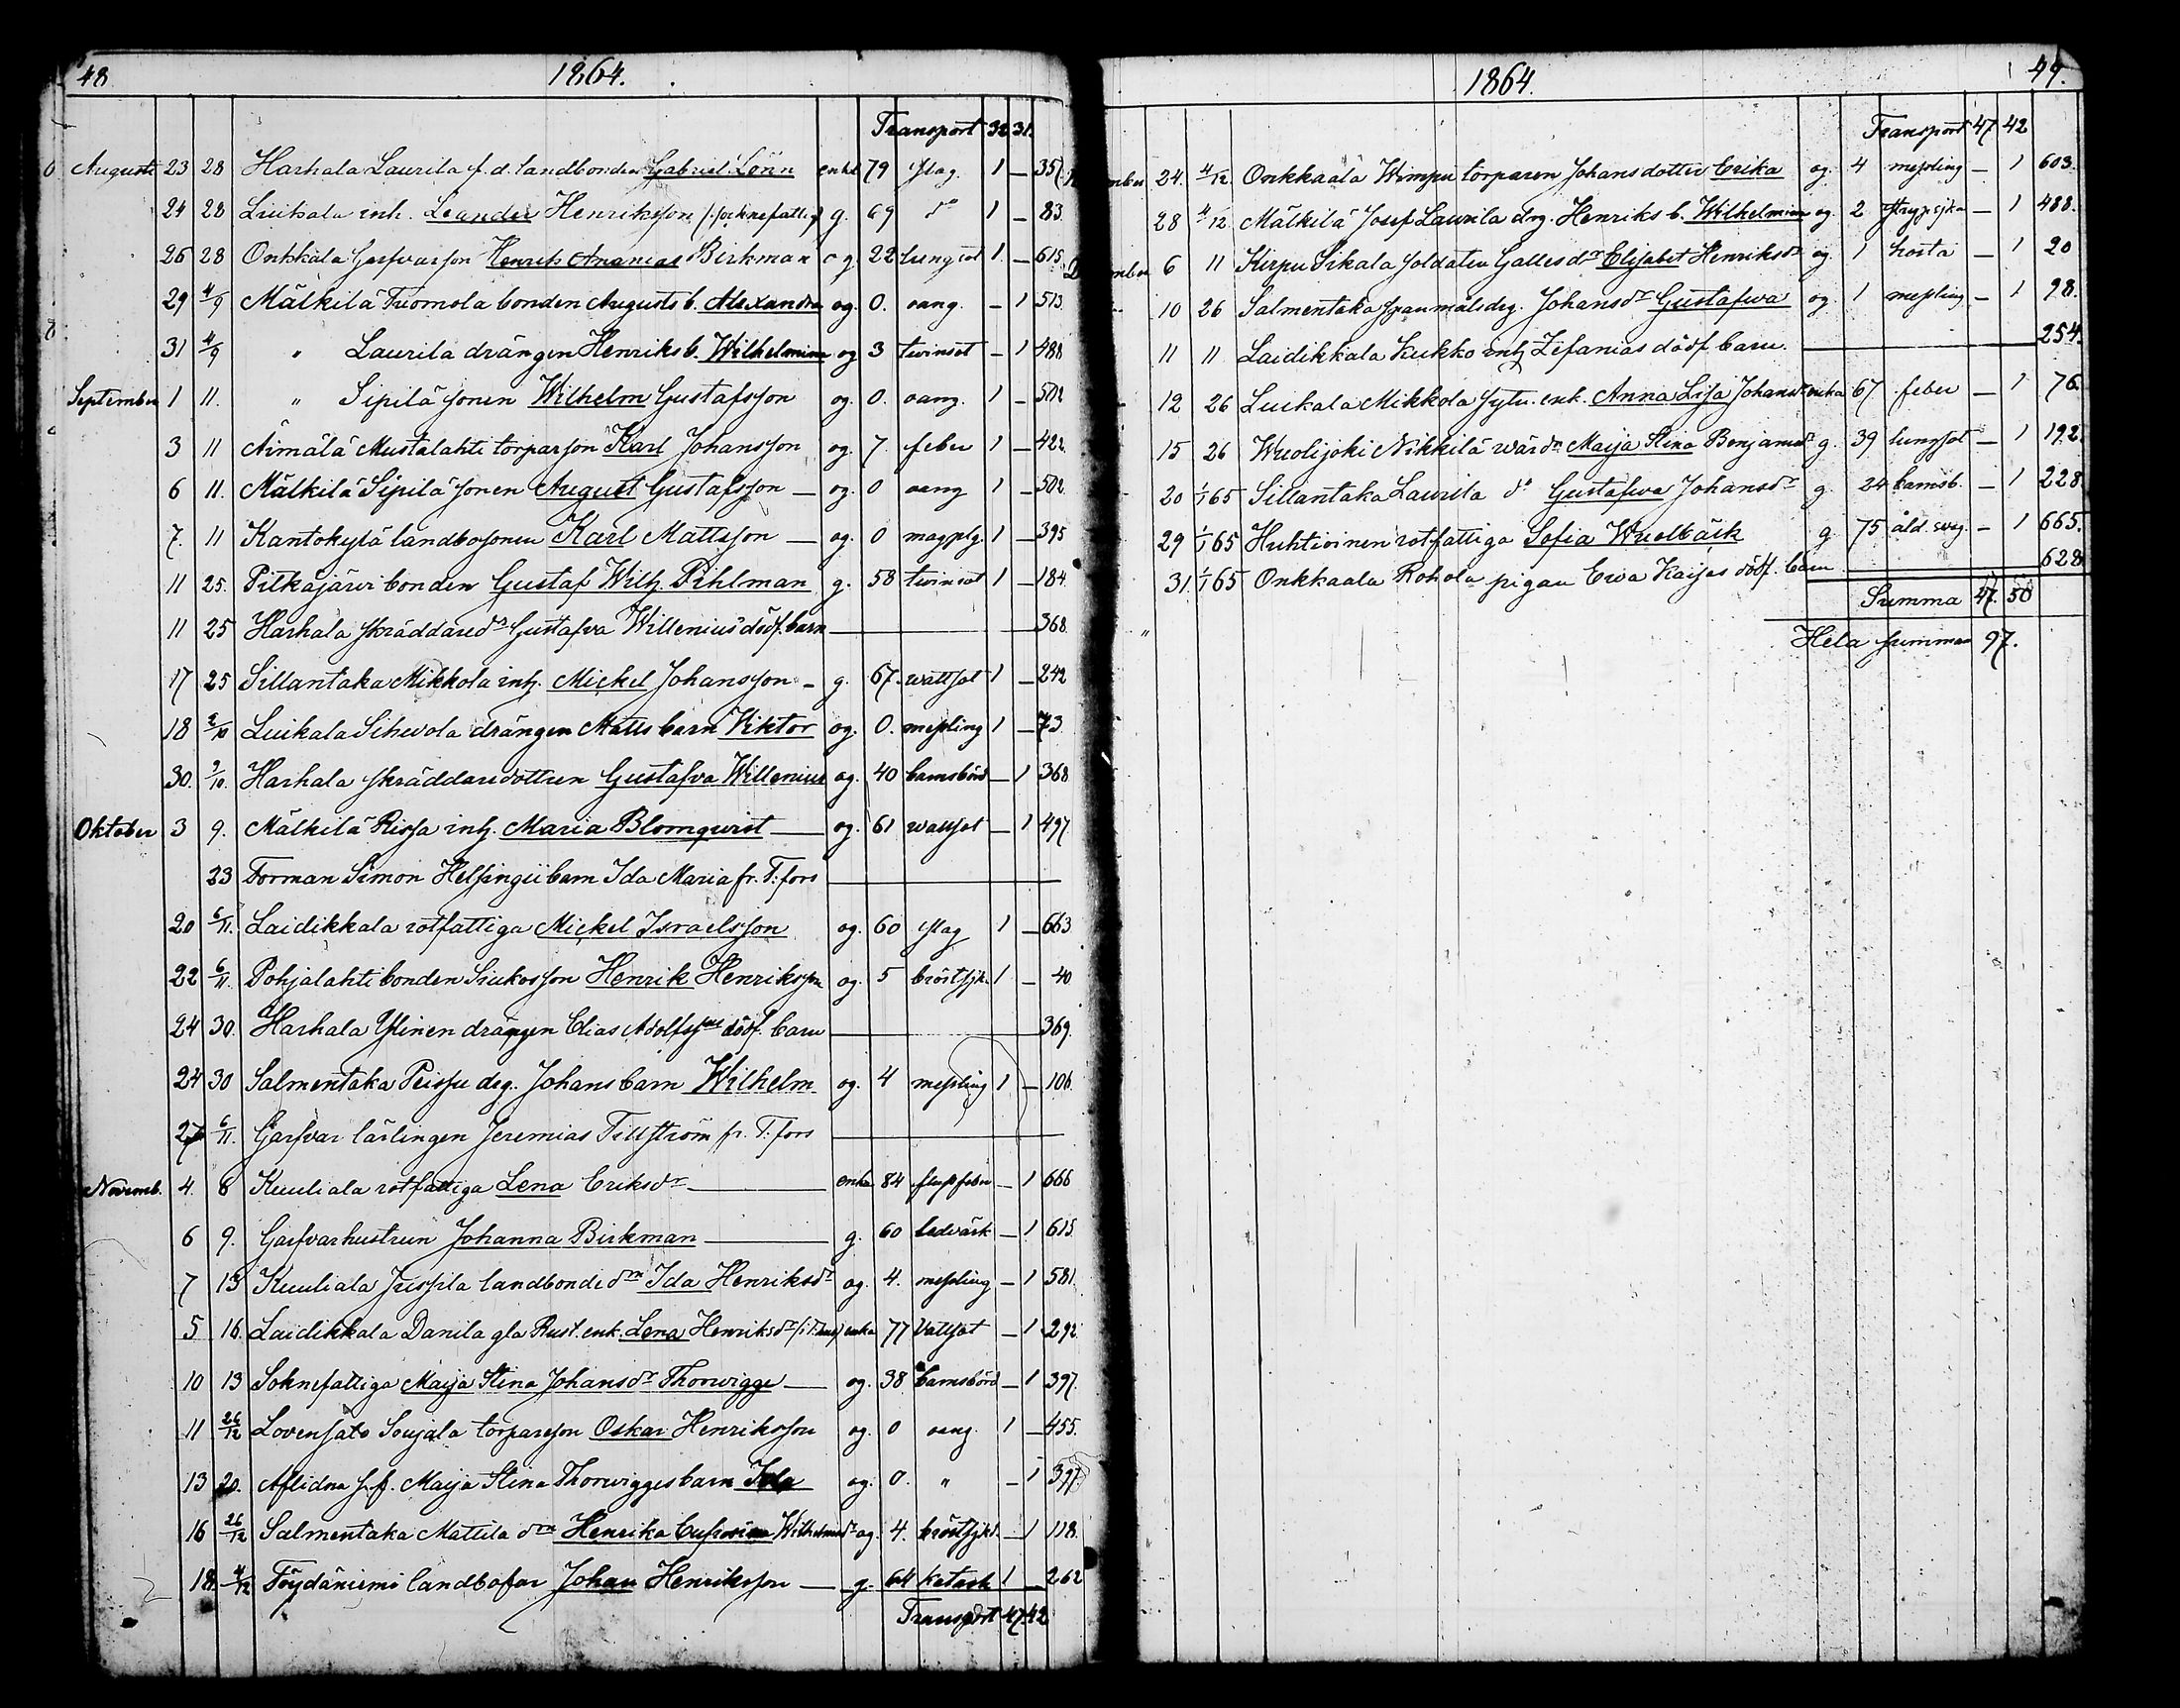 48
1864.
Transport 32 31.
Augusti 23 28 Harhala Laurila f. d. landbonden Gabriel Lönn enkl. 79 slag. 1 — 357.
24 28 Luikala inh. Leander Henriksson (socknefattig) g. 69 do 1 — 83.
26 28 Onkkala Garfvarson Henrik Ananias Birkman og. 22 lungsot 1 — 615
29 4/9 Mälkilä Tuomola bonden Augusts b. Alexandra og. 0. oang. — 1 513
31 4/9 " Laurila drängen Henriks b. Wilhelmina og 3 twinsot — 1 488
September 1 11. " Sipilä sonen Wilhelm Gustafsson og. 0. oang. 1 — 502
3 11 Äimälä Mustalahti torparson Karl Johansson og. 7. feber 1 — 422
6 11. Mälkilä Sipilä sonen August Gustafsson — og. 0 oang 1 — 502
7. 11 Kantokylä landbosonen Karl Mattsson — og. 0 magplg. 1 — 395
11 25. Pitkäjärvi bonden Gustaf Wilh. Pihlman g. 58 twinsot 1 — 184
11 25 Harhala skräddaredr Gustafva Willenius dödf. barn 368.
17 25 Sillantaka Mikkola inh. Mickel Johansson — g. 67. wattsot 1 — 242
18 2/10 Luikala Sihvola drängen Matts barn Viktor og. 0. messling 1 — 73
30. 2/10. Harhala skräddaredottren Gustafva Willenius og. 40 barnsbörd — 1 368
Oktober 3 9. Mälkilä Rissa inh. Maria Blomqvist — og. 61 wattsot — 1 497
23 Forman Simon Helsingii barn Ida Maria fr. T:fors
20 6/11. Laidikkala rotfattiga Mickel Israelsson og. 60 slag 1 — 663
22 6/11. Pohjalahti bonden Siukosson Henrik Henriksson og. 5 bröstsjk. 1 — 40
24 30. Harhala Ylinen drängen Elias Adolfssons dödf. barn 369.
24 30 Salmentaka Peissu drg. Johans barn Wilhelm og. 4 messling 1 — 106
27 6/11. Garfvar lärlingen Jeremias Tillström fr. T:fors
Novemb. 4. 8 Kuuliala rotfattiga Lena Eriksdr enka 84 slemfeber — 1 666
6 9. Garfvarhustrun Johanna Birkman g. 60 ledvärk — 1 615
7 13 Kuuliala Jussila landbondedrn Ida Henriksdr og. 4. messling — 1 581.
5 16. Laidikkala Danila gla Rust. enk. Lena Henriksdr enka 77 Vattsot — 1 292
10 13 Soknefattiga Maija Stina Johansdr Thorwigge — og. 38 barnsbörd — 1 397.
11 26/12 Lovensato Soujala torpareson Oskar Henriksson og. 0 oang. 1 — 455.
13 20. Aflidna s. f. Maija Stina Thorwigges barn Ida og. 0. " — 1 397.
16 26/12 Salmentaka Mattila drn Henrika Eufrosina Wilhelmsdr og. 4. bröstsjkd. — 1 118.
18. 4/12 Töydäniemi landbofar Johan Henriksson — g. 64 katarh 1 — 262
Transport 47. 42
1864.
49.
Transport 47 42
mber 24. 4/12 Onkkaala Wimpu torparen Johans dotter Erika og. 4 messling — 1 603.
28 4/12 Mälkilä Josef Laurila drg. Henriks b. Wilhelmina og. 2 strypsjka — 1 488.
mber 6 11 Kirpu Sikala soldaten Galles dr Elisabet Henriksdr og. 1 hosta — 1 20
10 26 Salmentaka Spanmälsdrg. Johansdr Gustafwa og. 1 messling — 1 98.
11 11 Laidikkala Kukko inh Zefanias dödf. barn 254.
12 26 Luikala Mikkola Sytn. enk. Anna Lisa Johansdr enka 67 feber — 1 76
15 26 Wuolijoki Nikkilä wärdn Maija Stina Benjamsdr g. 39 lungsot — 1 192.
20 1/1 65 Sillantaka Laurila do Gustafwa Johansdr g. 24 barnsb. — 1 228
29 1/1 65 Huhtioinen rotfattiga Sofia Wuolbäck g 75 åld. svag. — 1 665.
31. 1/1 65 Onkkaala Rohola pigan Ewa Kaijas dödf. barn 628
Summa 47. 50
Hela summan 97.